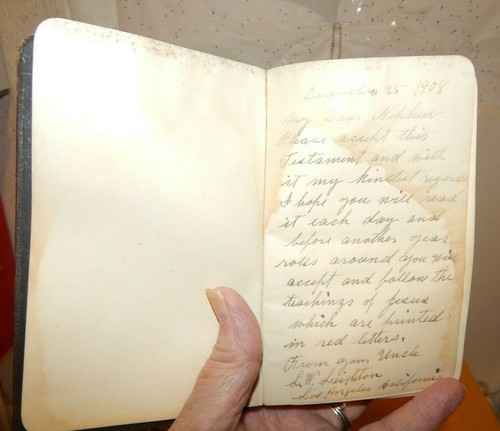 December 25 1908
My Dear Nephew
Please accept this
Testament and with
it my kindest regards
I hope you will read
it each day and
before another year
rolls around you will
accept and follow the
teachings of Jesus
which are printed
in red letters.
From your Uncle
S.W. Leighton
Los Angeles California